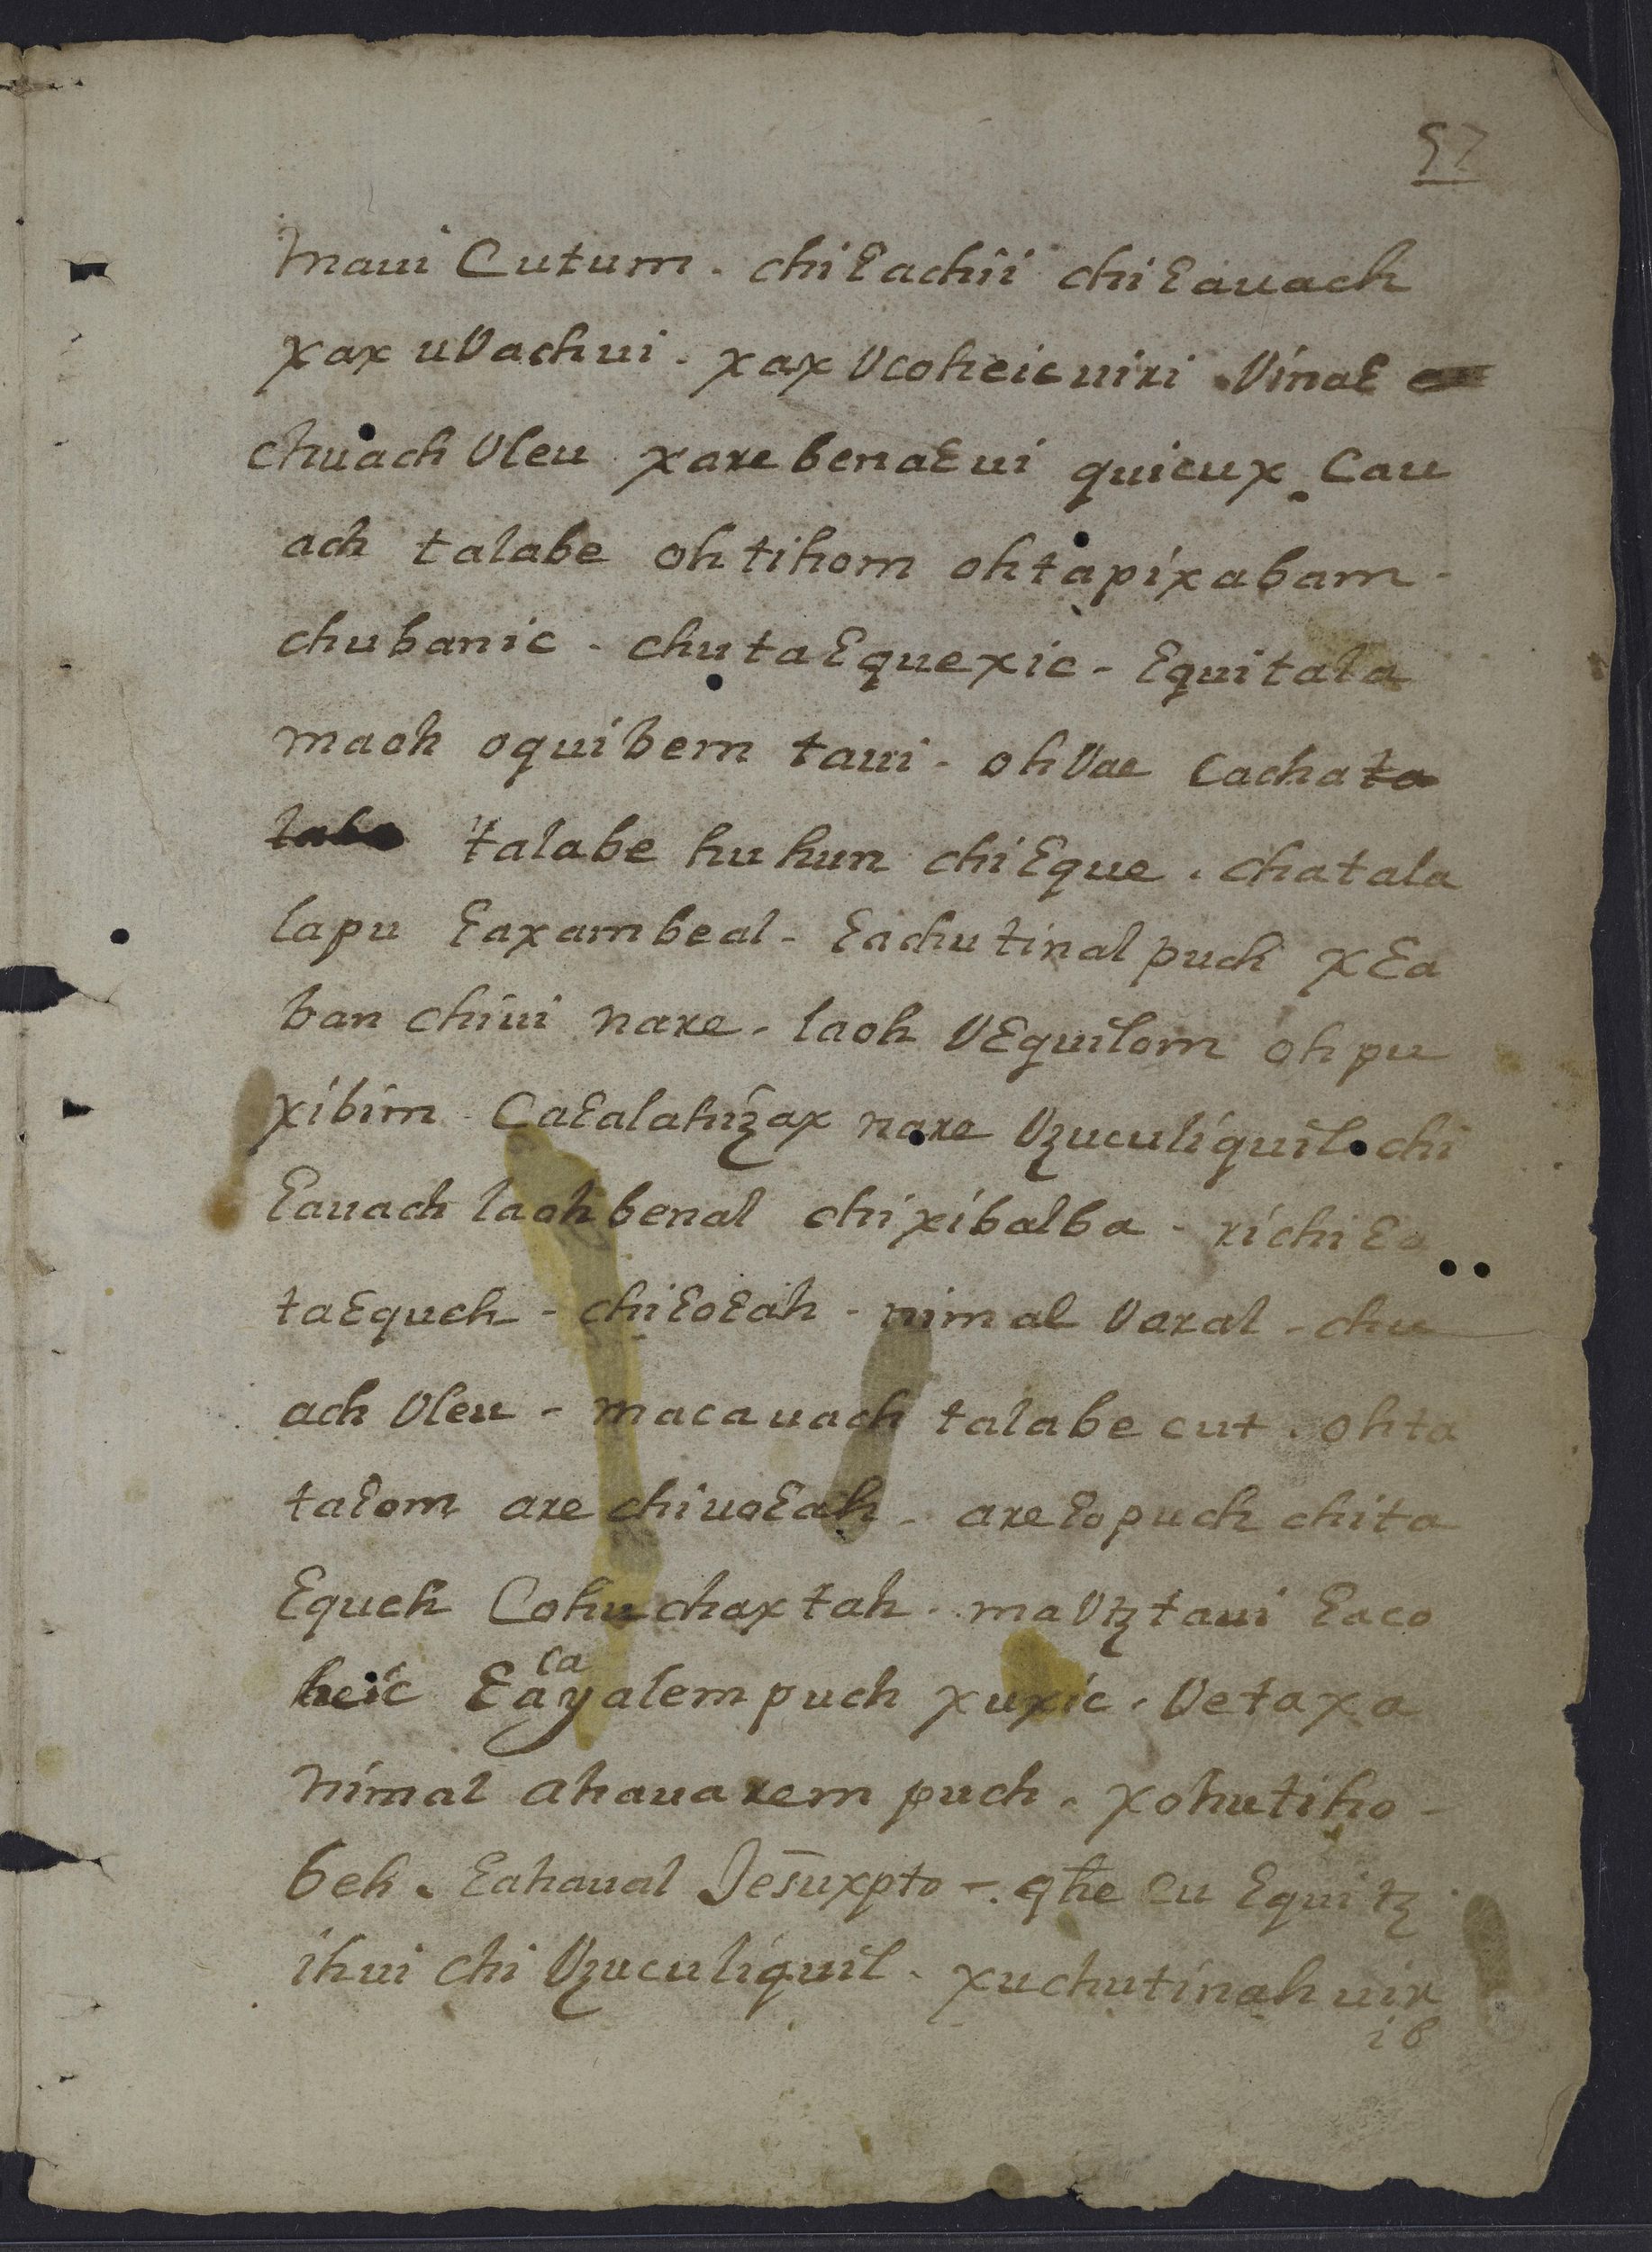 57
maui Cutum . chiƐachii chiƐauach
xax uVachui . xax Vcoheic uiri . VinaƐ
chuach Vleu xare benaƐui quicux . Cau
ach talabe ohtihom ohtapixabam -
chubanic - chutaƐquexic - Ɛquitala
maoh oquibem taui - ohVae cacha ta
talabe huhun chiƐque . chatala
lapu Ɛaxambeal - Ɛachutinal puch xƐa
ban chiui nare - laoh VƐquilom ohpu
xibim - CaƐalahiꜩax nare Vzuculiquil chi
Ɛauach laoh benal chixibalba - richiƐa
taƐqueh - chiƐoƐah - nimal Varal - chu
ach Vleu - macauach talabe cut . ohta
taƐom are chiuoƐah - areƐopuch chita
Ɛqueh Cohuchaxtah - maVtztaui Ɛaco
heic Ɛacayalem puch xuxic . Vetaxa
nimal ahauarem puch . xohutiho -
beh . Ɛahaual Jesuxpto - . qhe cu Ɛquitz
ihui chi Vzuculiquil - xuchutinah uir
ib